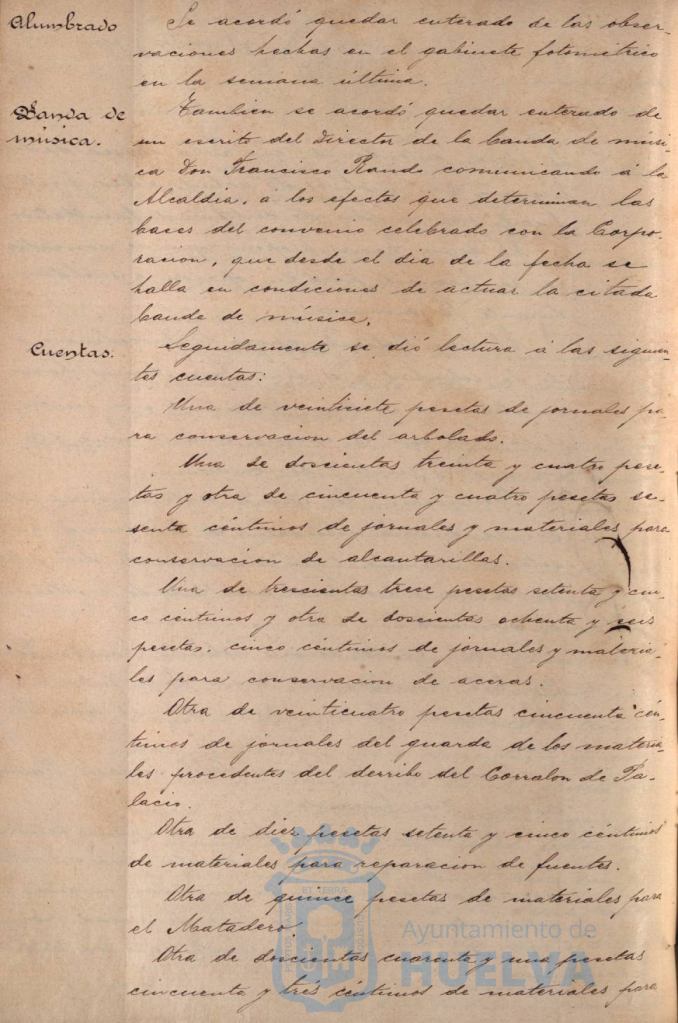 Alumbrado
Se acordó quedar enterado de las obser-
vaciones hechas en el gabinete fotométrico
en la semana última.
Banda de
música.
Tambien se acordó quedar enterado de
un escrito del Director de la banda de músi
ca Don Francisco Rando comunicando á la
Alcaldia, á los efectos que determinan las
bases del convenio celebrado con la Corpo-
racion, que desde el dia de la fecha se
halla en condiciones de actuar la citada
banda de música.
Cuentas.
Seguidamente se dió lectura á las siguien-
tes cuentas:
Una de veintisiete pesetas de jornales pa-
ra conservacion del arbolado.
Una de doscientas treinta y cuatro pese-
tas y otra de cincuenta y cuatro pesetas se-
senta céntimos de jornales y materiales para
conservacion de alcantarillas.
Una de trescientas trece pesetas setenta y cin-
co centimos y otra de doscientas ochenta y seis
pesetas, cinco céntimos de jornales y materia-
les para conservacion de aceras.
Otra de veinticuatro pesetas cincuenta cén-
timos de jornales del guarda de los materia-
les procedentes del derribo del Corralon de Pa-
lacio.
Otra de diez pesetas setenta y cinco céntimos
de materiales para reparacion de fuentes.
Otra de quince pesetas de materiales para
el Matadero.
Otra de doscientas cuarenta y una pesetas
cincuenta y tres céntimos de materiales para
Ayuntamiento de
HUELVA